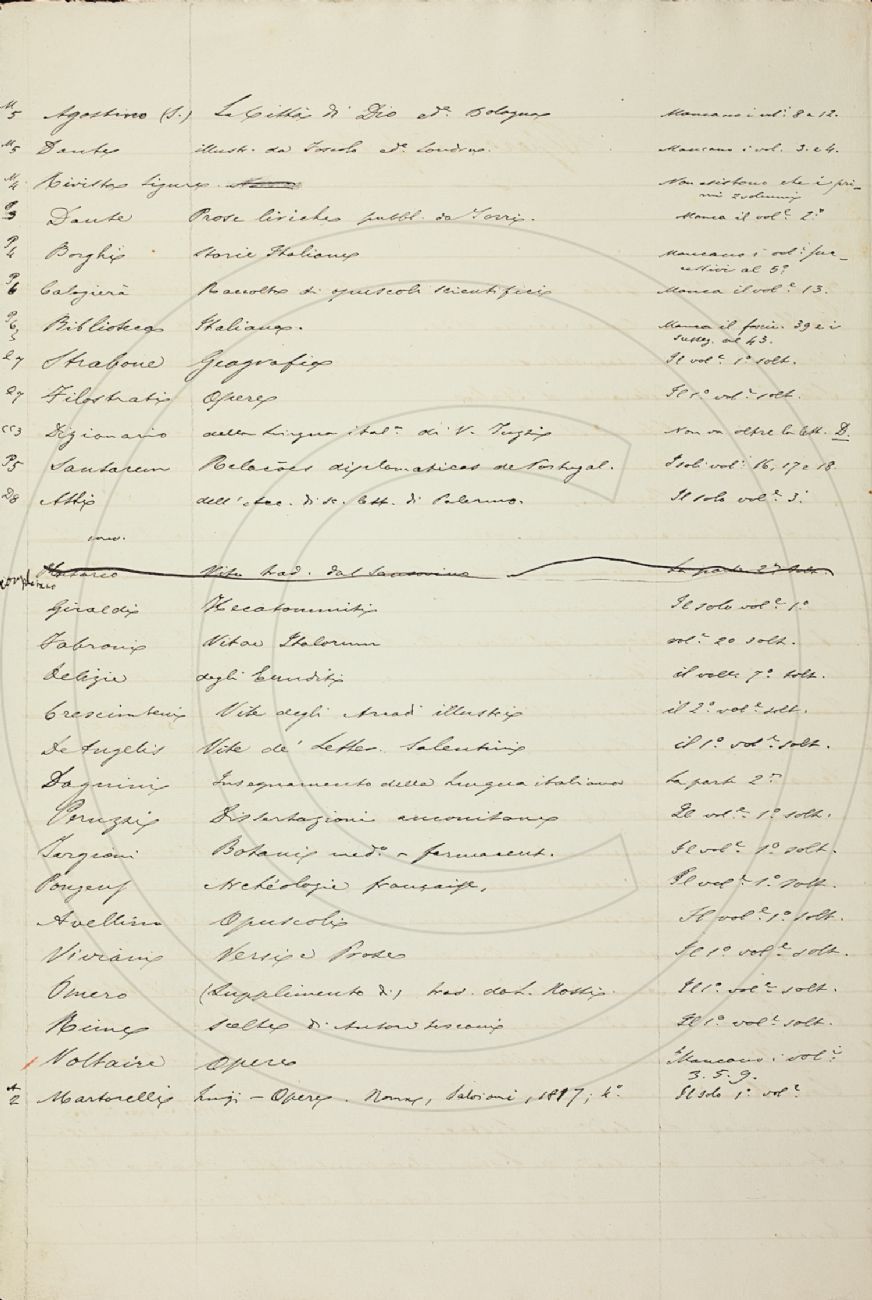 M 5 Agostino (S.) La Città di Dio ed.e Bologna Mancano i vol.i 8 e 12.
M 5 Dante illustr. da Foscolo ed.e Londra. Mancano i vol. 3. e 4.
M 4 Rivista ligure. Non esistono che i pri-
mi 2 volumi
P 3 Dante Prose liriche pubbl. da Torri. Manca il vol.e 2.o
P 4 Borghi Storie Italiane Mancano i vol.i suc-
cessivi al 5.o
P 6 Calogierà Raccolta di opuscoli scientifici Manca il vol.e 13.
P 6 Biblioteca Italiana. Manca il fascic. 39 e i
susseg. al 43.
Q 7 Strabone Geografia Il vol.e 1.o solt.
Q 7 Filostrati Opere Il 1.o vol.e solt.
CC 3 Dizionario della Lingua ital.a di V. Non va oltre la lett. D.
P 5 Santarem Relações diplomaticas de Portugal. I soli vol.i 16, 17 e 18.
D 8 Atti dell' Acc. di sc. lett. di Palermo. Il solo vol.e 3.o
Plutarco Vite trad. dal Sansovino La parte 2.a solt.
Giraldi Hecatommiti Il solo vol.e 1.o
Fabroni Vitae Italorum vol.e 20 solt.
Delizie degli Eruditi il vol.e 7.o solt.
Crescimbeni Vite degli Arcadi illustri il 2.o vol.e solt.
De Angelis Vite de' Letter. Salentini il 1.o vol.e solt.
Dagnini Insegnamento della Lingua italiana La parte 2.a
Peruzzi Dissertazioni anconitane Il vol.e 1.o solt.
Targioni Botanic. med.a - farmaceut. Il vol.e 1.o solt.
Pougens Archéologie française, Il vol.e 1.o solt.
Avellino Opuscoli Il vol.e 1.o solt.
Viviani Versi e Prose Il 1.o vol.e solt.
Omero (Supplimento di) trad. da L. Rossi. Il 1.o vol.e solt.
Rime scelte di Autori toscani Il 1.o vol.e solt.
Voltaire Opere Mancano i vol.i
3. 5. 9.
A 2 Martorelli Luigi - Opere. Roma, Salvioni, 1817, 4.o Il solo 1.o vol.e